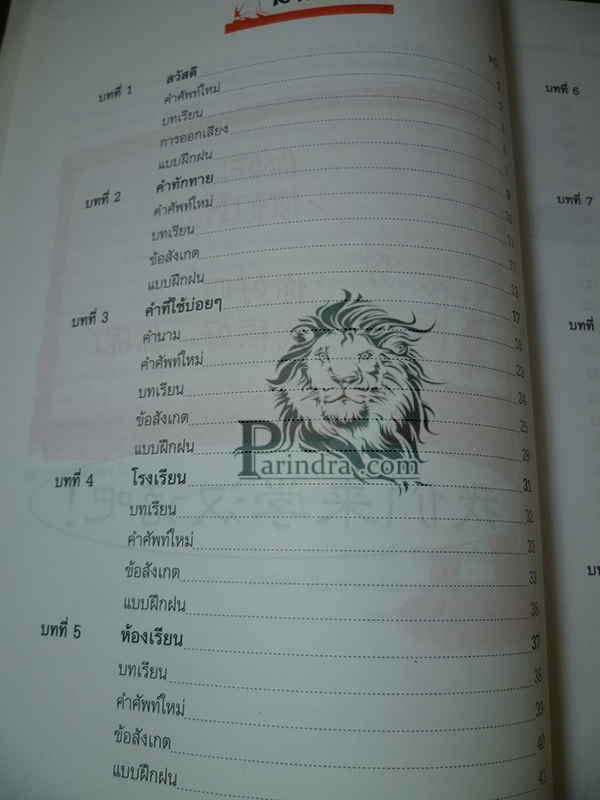 หน้า
บทที่ 1 สวัสดี 1
คำศัพท์ใหม่ 2
บทเรียน 3
การออกเสียง 4
แบบฝึกฝน 7
บทที่ 2 คำทักทาย 9
คำศัพท์ใหม่ 10
บทเรียน 11
ข้อสังเกต 12
แบบฝึกฝน 13
บทที่ 3 คำที่ใช้บ่อยๆ 17
คำนาม 18
คำศัพท์ใหม่ 23
บทเรียน 24
ข้อสังเกต 25
แบบฝึกฝน 28
บทที่ 4 โรงเรียน 31
บทเรียน 32
คำศัพท์ใหม่ 33
ข้อสังเกต 33
แบบฝึกฝน 35
บทที่ 5 ห้องเรียน 37
บทเรียน 38
คำศัพท์ใหม่ 39
ข้อสังเกต 40
แบบฝึกฝน 41
บทที่ 6
บทที่ 7
บทที่
Parindra.com